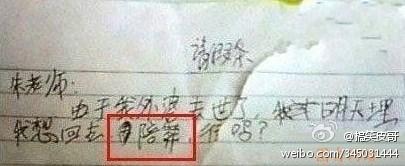 请假条
朱老师:
由于我外婆去世了, 明天埋
我想回去 陪葬, 行吗?
@搞笑皮哥
weibo.com/345031444